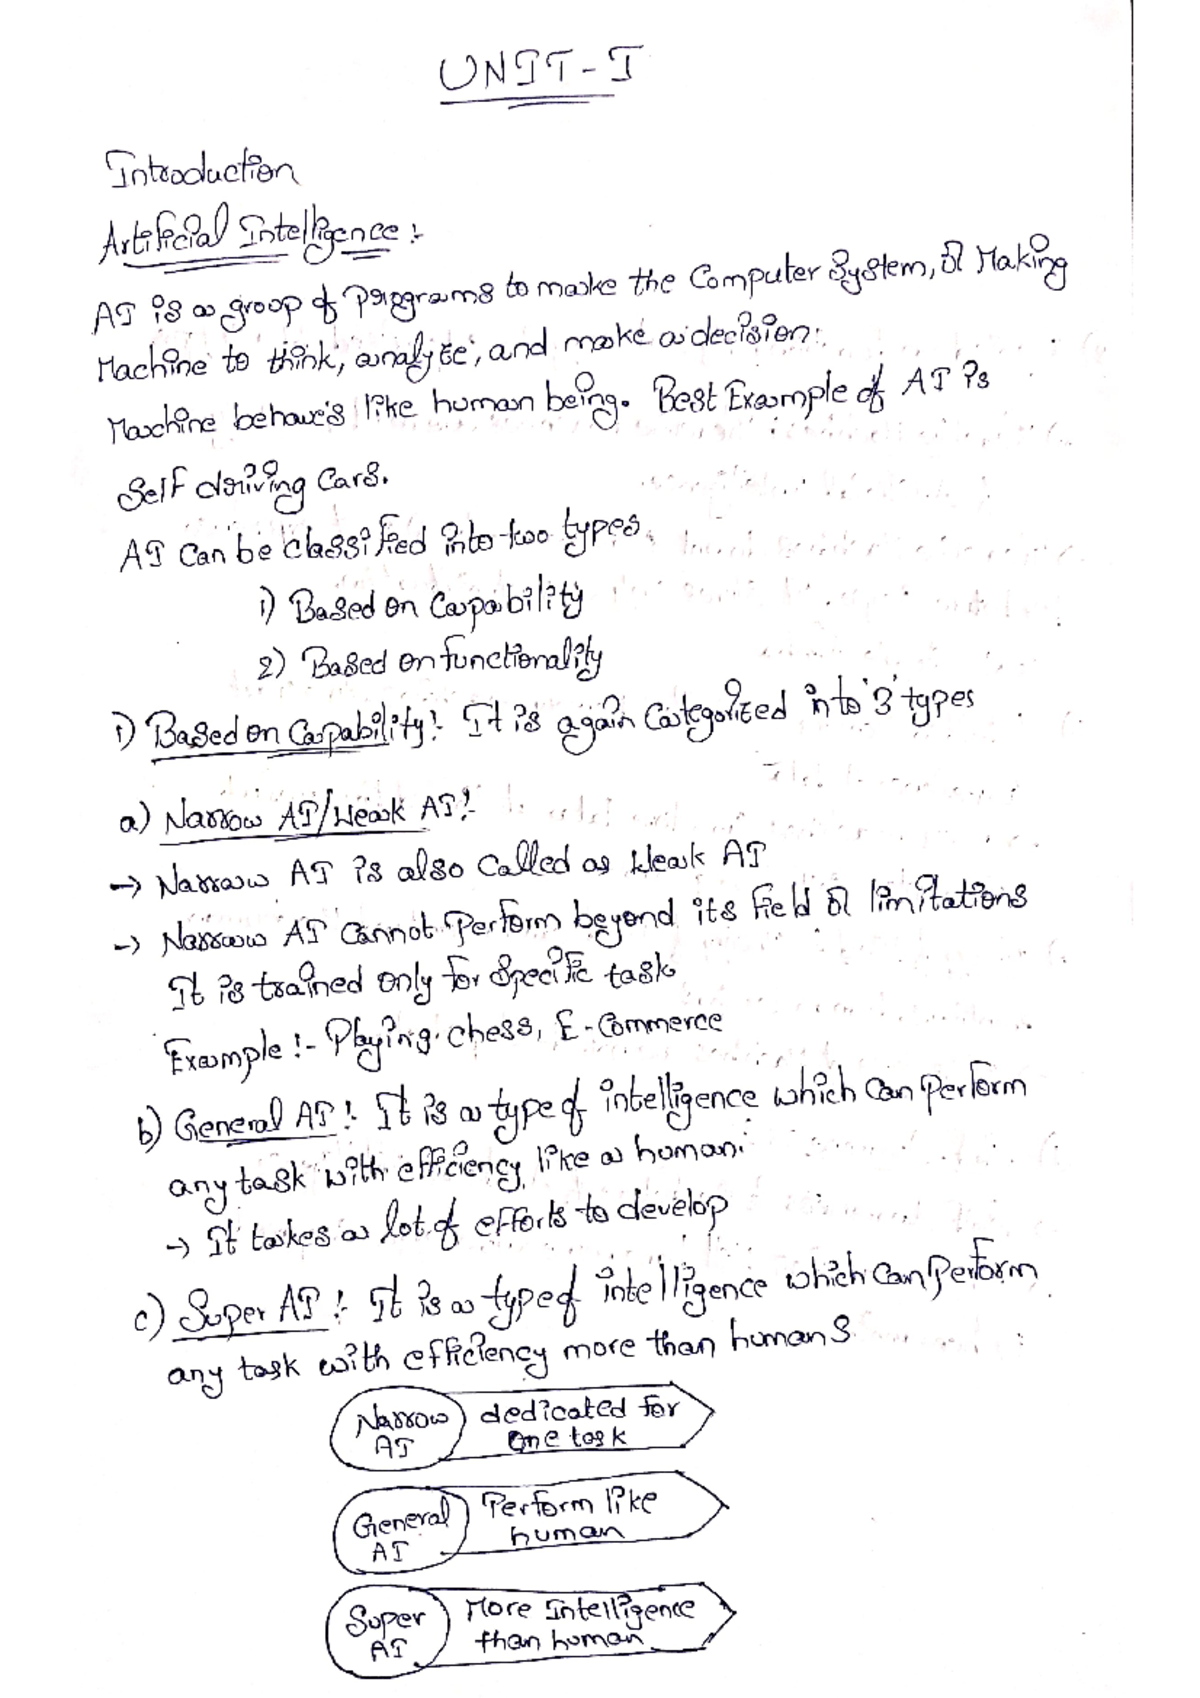 UNIT-I
Introduction
Artificial Intelligence :-
AI is a group of programs to make the Computer System, or Making
Machine to think, analyze, and make a decision.
Machine behave's like human being. Best Example of AI is
Self driving Cars.
AI can be classified into two types.
1) Based on Capability
2) Based on functionality
1) Based on Capability:- It is again Categorized into '3' types
a) Narrow AI/Weak AI:-
→ Narrow AI is also Called as Weak AI
→ Narrow AI Cannot Perform beyond its field or limitations
It is trained only for Specific task
Example :- Playing chess, E-Commerce
b) General AI :- It is a type of intelligence which Can Perform
any task with efficiency like a human.
→ It takes a lot of efforts to develop
c) Super AI :- It is a type of intelligence which Can Perform
any task with efficiency more than humans
Narrow AI dedicated for one task
General AI Perform like human
Super AI More Intelligence than human